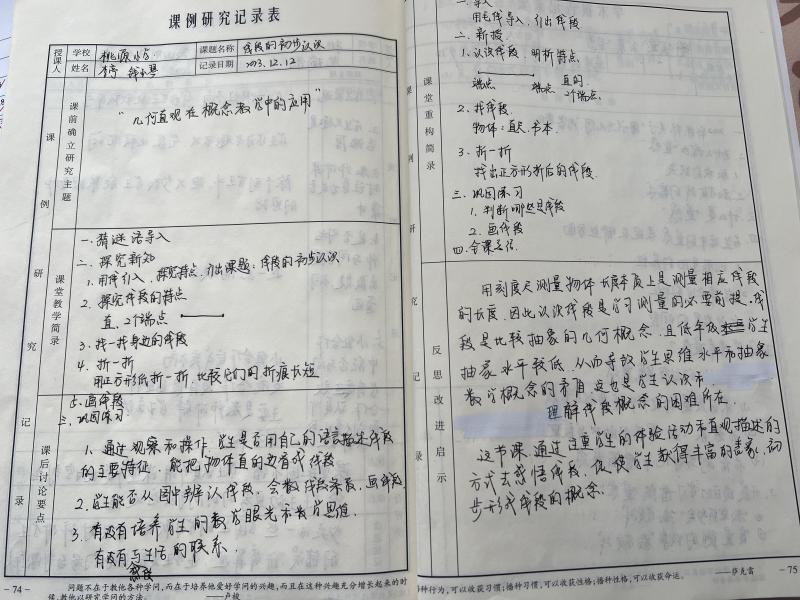 课例研究记录表
授课人 学校 桃源小学 课题名称 线段的初步认识
姓名 记录日期 2023.12.12
课例研究记录
课前确立研究主题
"几何直观在概念教学中的应用"
课堂教学简录
一.猜谜语导入
二.探究新知
1.用线引入,探究特点,引出课题:线段的初步认识
2.探究线段的特点
直,2个端点
3.找一找身边的线段
4.折一折
用正方形纸折一折,比较它们的折痕长短
5.画线段
三.巩固练习:
课后讨论要点
1.通过观察和操作,学生是否用自己的语言描述线段
的主要特征,能把物体直的边看成线段
2.学生能否从图中辨认线段,会数线段条数,画线段
3.有没有培养学生的数学眼光和数学思维
有没有与生活的联系.
- 74 -
问题不在于教他各种学问,而在于培养他爱好学问的兴趣,而且在这种兴趣充分增长起来的时
候,教他以研究学问的方法。 ——卢梭
课例研究记录
课堂重构简录
一.导入
用毛线导入,引出线段
二.新授
1.认识线段,明晰特点
端点 端点 直的
2个端点
2.找线段
物体:直尺.书本.
3.折一折
找出正方形折后的线段.
三.巩固练习
1.判断哪些是线段
2.画线段
四.全课总结
反思改进启示
用刻度尺测量物体长度本质上是测量相应线段
的长度.因此认识线段是学习测量的必要前提.线
段是比较抽象的几何概念,且低年级学生
抽象水平较低.从而导致学生思维水平和抽象
数学概念的矛盾,这也是学生认识和
理解线段概念的困难所在.
这节课,通过注重学生的体验活动和直观描述的
方式去感悟线段,促使学生获得丰富的表象,初
步形成线段的概念.
播种行为,可以收获习惯;播种习惯,可以收获性格;播种性格,可以收获命运。 ——萨克雷
- 75